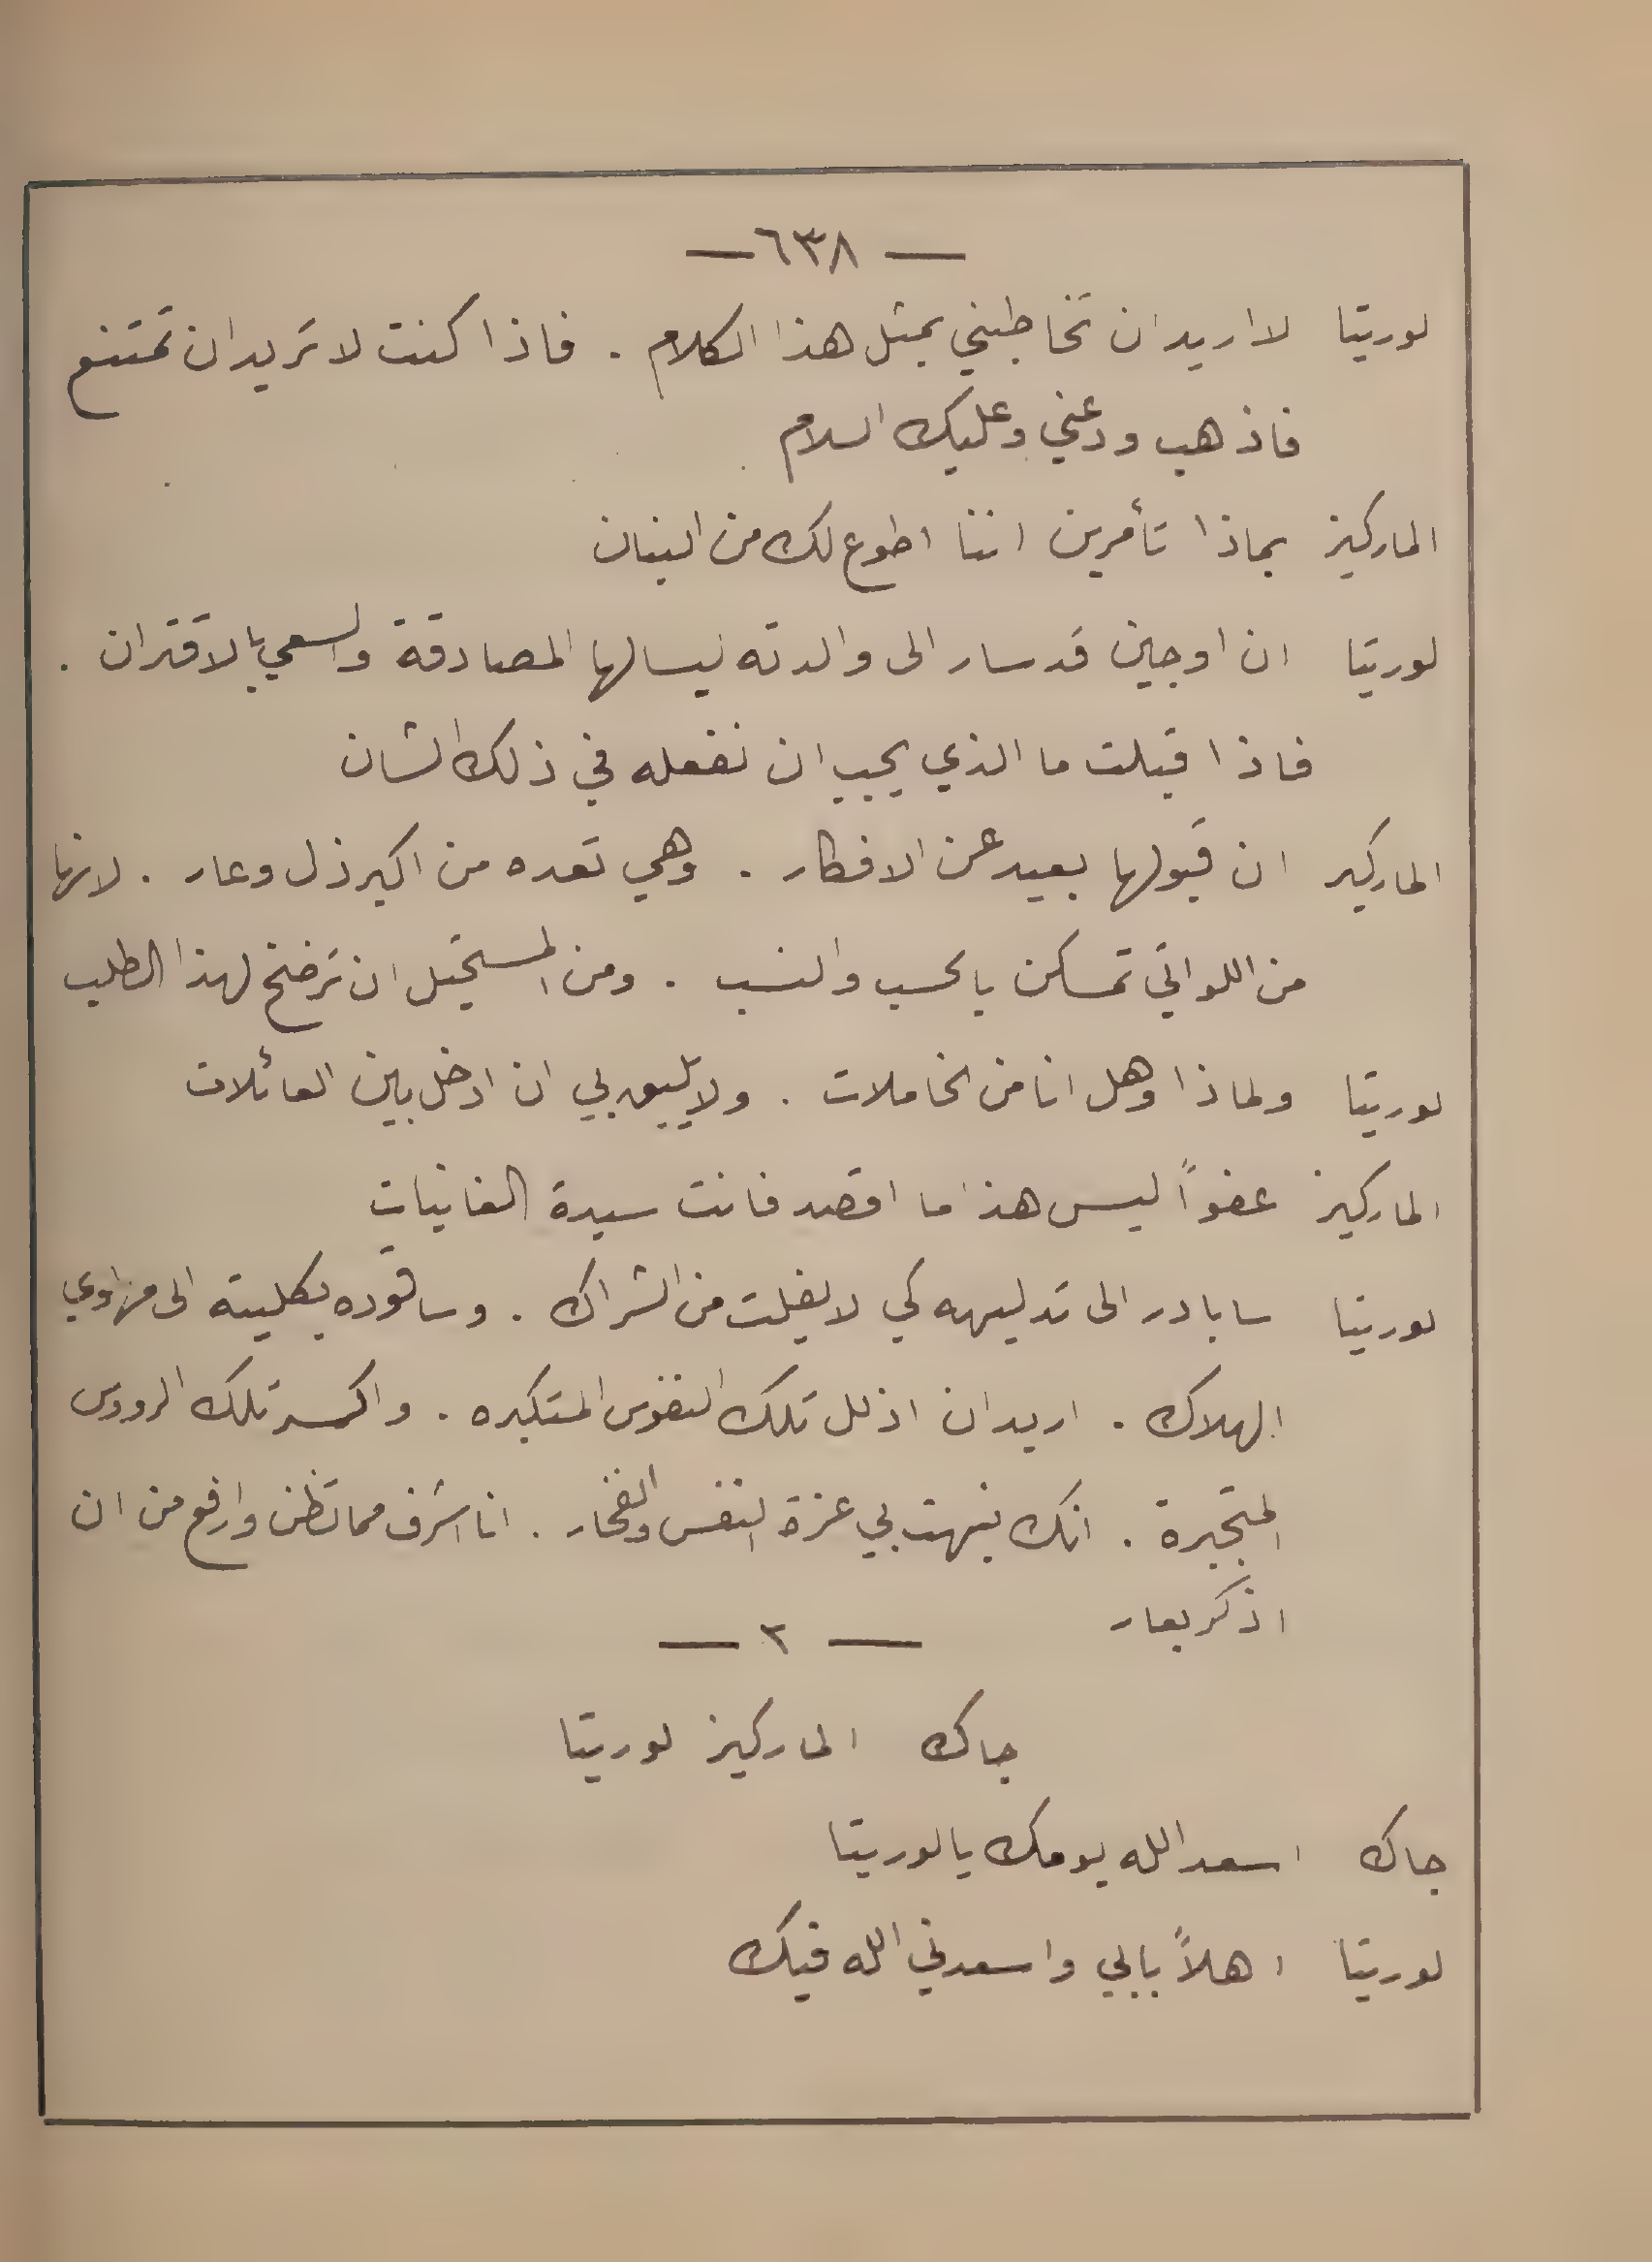 — ٦٣٨ —
لوريتا لا اريد ان تخاطبني بمثل هذا الكلام . فاذا كنت لا تريد ان تمتنع
فاذهب ودعني وعليك السلام
الماركيز بماذا تأمرين اننا اطوع لك من البنان
لوريتا ان اوجين قد سار الى والدته ليسالها المصادقة والسعي بالاقتران .
فاذا قبلت ما الذي يجب ان نفعله في ذلك الشان
الماركيز ان قبولها بعيد عن الافكار . وهي تعده من اكبر ذل وعار . لانها
من اللواتي تمسكن بالحسب والنسب . ومن المستحيل ان ترضخ لهذا الطلب
لوريتا ولماذا وهل انا من الخاملات . ولا يليق بي ان ادخل بين العائلات
الماركيز عفواً ليس هذا ما اقصد فانت سيدة الغانيات
لوريتا سابادر الى تدليهه كي لا يفلت من الشراك . وساقوده بكليته الى مهاوي
الهلاك . اريد ان اذلل تلك النفوس المتكبره . واكسر تلك الرووس
المتجبرة . انك نبهت بي عزة النفس والفخار . انا اشرف مما تظن وارفع من ان
اذكر بعار
— ٢ —
جاك الماركيز لوريتا
جاك اسعد الله يومك يا لوريتا
لوريتا اهلاً بابي واسعدني الله فيك